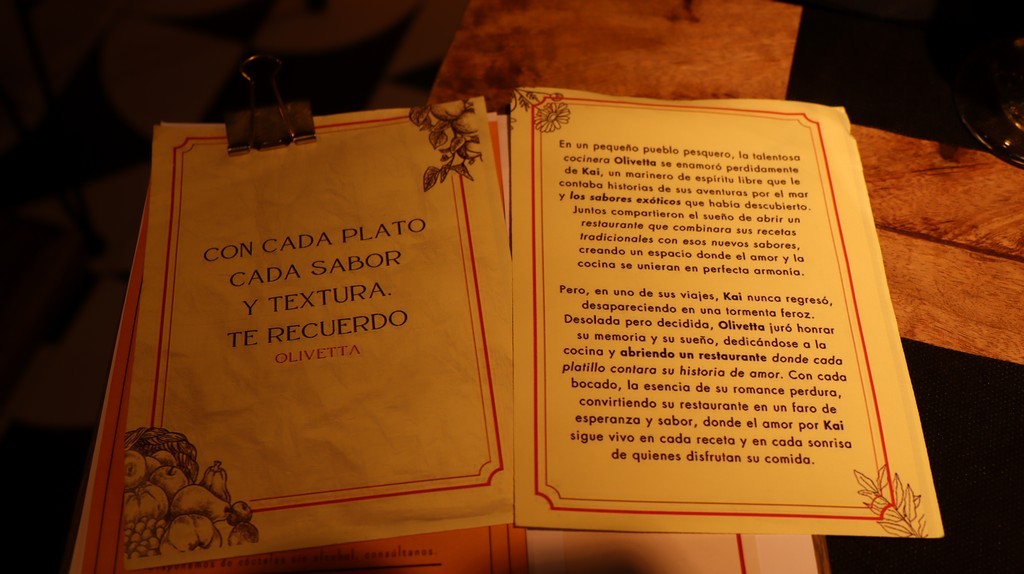 CON CADA PLATO
CADA SABOR
Y TEXTURA.
TE RECUERDO
OLIVETTA
En un pequeño pueblo pesquero, la talentosa
cocinera Olivetta se enamoró perdidamente
de Kai, un marinero de espíritu libre que le
contaba historias de sus aventuras por el mar
y los sabores exóticos que había descubierto.
Juntos compartieron el sueño de abrir un
restaurante que combinara sus recetas
tradicionales con esos nuevos sabores,
creando un espacio donde el amor y la
cocina se unieran en perfecta armonía.
Pero, en uno de sus viajes, Kai nunca regresó,
desapareciendo en una tormenta feroz.
Desolada pero decidida, Olivetta juró honrar
su memoria y su sueño, dedicándose a la
cocina y abriendo un restaurante donde cada
platillo contara su historia de amor. Con cada
bocado, la esencia de su romance perdura,
convirtiendo su restaurante en un faro de
esperanza y sabor, donde el amor por Kai
sigue vivo en cada receta y en cada sonrisa
de quienes disfrutan su comida.
de cócteles sin alcohol, consúltanos.